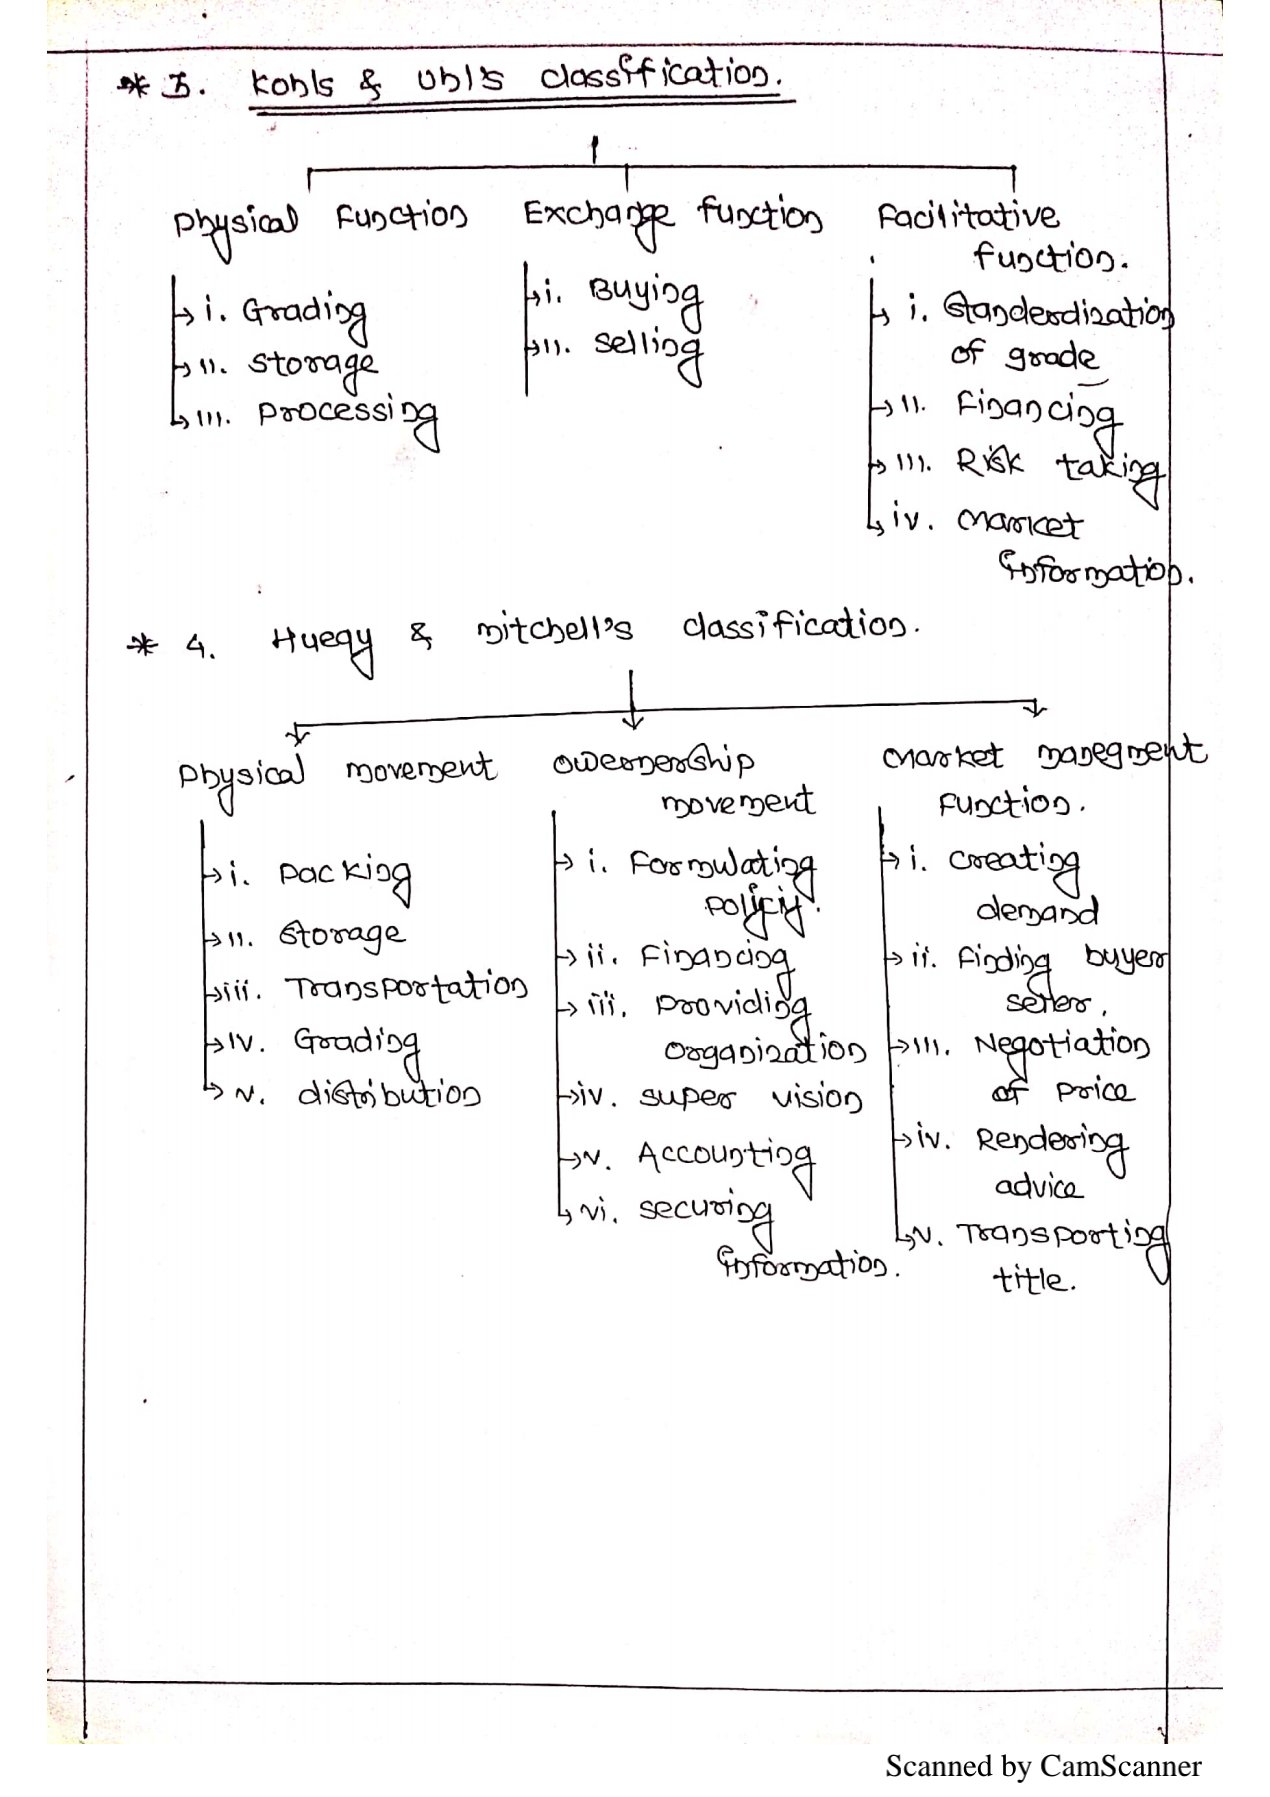 * 3. Kohls & Uhl's classification.
Physical Function
→ i. Grading
→ ii. Storage
→ iii. Processing
Exchange function
→ i. Buying
→ ii. Selling
Facilitative
function.
→ i. Standerdization
of grade
→ ii. Financing
→ iii. Risk taking
→ iv. Market
Information.
* 4. Huegy & Mitchell's classification.
Physical movement
→ i. Packing
→ ii. Storage
→ iii. Transportation
→ iv. Grading
→ v. distribution
Owernership
movement
→ i. Formulating
policiy.
→ ii. Financing
→ iii. Providing
Organization
→ iv. super vision
→ v. Accounting
→ vi. securing
Information.
Market manegment
Function.
→ i. Creating
demand
→ ii. Finding buyer
seller,
→ iii. Negotiation
of price
→ iv. Rendering
advice
→ v. Transporting
title.
Scanned by CamScanner